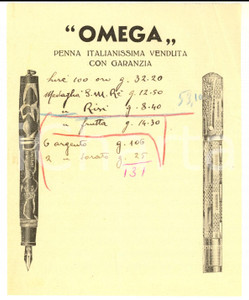 "OMEGA„
PENNA ITALIANISSIMA VENDUTA
CON GARANZIA
Lire 100 oro g. 32.20
Medaglia S.M. Re g. 12.50
" g. 8.40
" frutta g. 14.30
6 argento g. 106
2 " g. 25
131